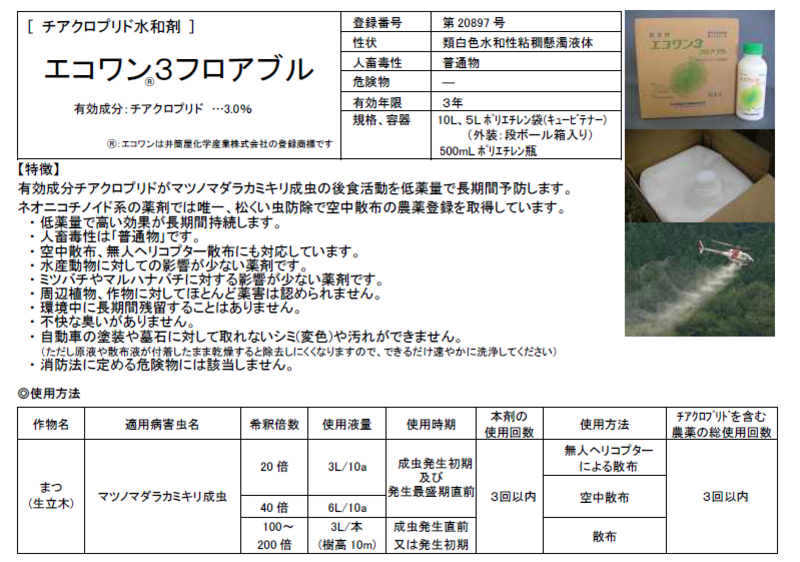 [ チアクロプリド水和剤 ]
エコワン®3フロアブル
有効成分：チアクロプリド …3.0%
®：エコワンは井筒屋化学産業株式会社の登録商標です
登録番号 第 20897 号
性状 類白色水和性粘稠懸濁液体
人畜毒性 普通物
危険物 ―
有効年限 3年
規格、容器 10L、5L ポリエチレン袋(キュービテナー)
(外装：段ボール箱入り)
500mL ポリエチレン瓶
エコワン3
フロアブル
【特徴】
有効成分チアクロプリドがマツノマダラカミキリ成虫の後食活動を低薬量で長期間予防します。
ネオニコチノイド系の薬剤では唯一、松くい虫防除で空中散布の農薬登録を取得しています。
・ 低薬量で高い効果が長期間持続します。
・ 人畜毒性は「普通物」です。
・ 空中散布、無人ヘリコプター散布にも対応しています。
・ 水産動物に対しての影響が少ない薬剤です。
・ ミツバチやマルハナバチに対する影響が少ない薬剤です。
・ 周辺植物、作物に対してほとんど薬害は認められません。
・ 環境中に長期間残留することはありません。
・ 不快な臭いがありません。
・ 自動車の塗装や墓石に対して取れないシミ(変色)や汚れができません。
(ただし原液や散布液が付着したまま乾燥すると除去しにくくなりますので、できるだけ速やかに洗浄してください)
・ 消防法に定める危険物には該当しません。
◎使用方法
作物名 適用病害虫名 希釈倍数 使用液量 使用時期 本剤の
使用回数 使用方法 チアクロプリドを含む
農薬の総使用回数
まつ
(生立木)
マツノマダラカミキリ成虫
20 倍 3L/10a 成虫発生初期
及び
発生最盛期直前
無人ヘリコプター
による散布
空中散布
40 倍 6L/10a
3回以内
3回以内
100～
200 倍
3L/本
(樹高 10m)
成虫発生直前
又は発生初期
散布